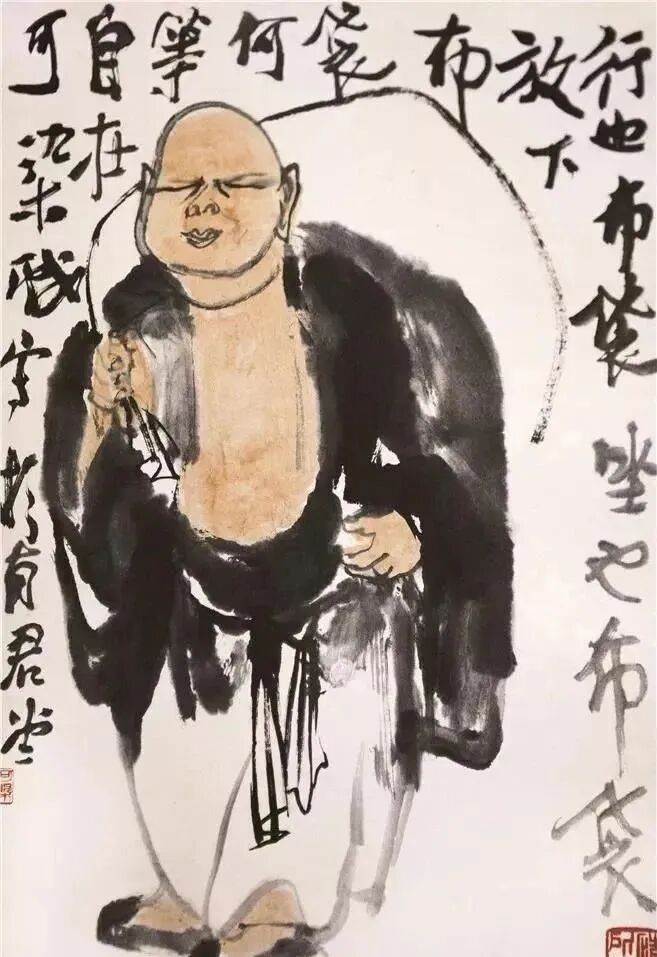 行也布袋坐也布袋
放下
布
袋
何
等
自在
可染戲写於有君堂
可染